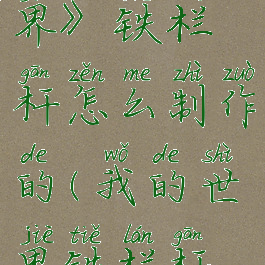 界》铁栏
gān zěn me zhì zuò
杆怎么制作
de wǒ de shì
的(我的世
jiè tiě lán gān
界铁栏杆